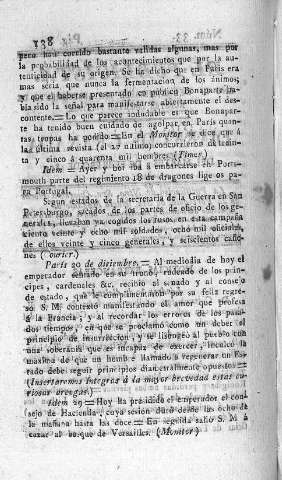 138
pero han corrido bastante validas algunas, mas por
la probabilidad de los acontecimientos que por la au-
tenticidad de su origen. Se ha dicho que en Paris era
mas seria que nunca la fermentacion de los ánimos;
y que el haberse presentado en público Bonaparte ha-
bia sido la señal para manifestarse abiertamente el des-
contento. = Lo que parece indudable es que Bonapar-
te ha tenido buen cuidado de agolpar en Paris quan-
tas tropas ha podido = En el Monitor se dice que á
la última revista (el 27 último) concurrieron de trein-
ta y cinco á quarenta mil hombres (Times.)
Idem = Ayer y hoi iba á embarcarse en Ports-
mouth parte del regimiento 18 de dragones lige os pa-
ra Portugal.
Segun estados de la secretaria de la Guerra en San
Petersburgo, sacados de los partes de oficio de los ge-
nerales, habian ya cogidos los rusos en esta campaña
ciento veinte y ocho mil soldados, ocho mil oficiales,
de ellos veinte y cinco generales, y seiscientos caño-
nes. (Courier.)
Paris 20 de diciembre. = Al mediodia de hoy el
emperador sentado en su trono, rodeado de los prín-
cipes, cardenales &c. recibio al senado y al consejo
de estado, que le cumplimentaron por su feliz regre-
so S. M. contextó manifestando el amor que profesa
á la Francia, y al recordar los errores de los pasa-
dos tiempos, en que se proclamó como un deber el
principio de insurreccion, y se lisongeó al pueblo con
una soberanía que es incapaz de exercer, inculcó la
maxîma de que un hombre llamado á regenerar un Es-
tado debe seguir principios diametralmente opuestos =
(Insertaremos íntegras á la mayor brevedad estas cu-
riosas arengas.)
Idem 29 = Hoy ha presidido el emperador el con-
sejo de Hacienda, cuya sesion duró desde las ocho de
la mañana hasta las doce. = En seguida salió S. M á
cazar al bosque de Versalles. (Monitor)